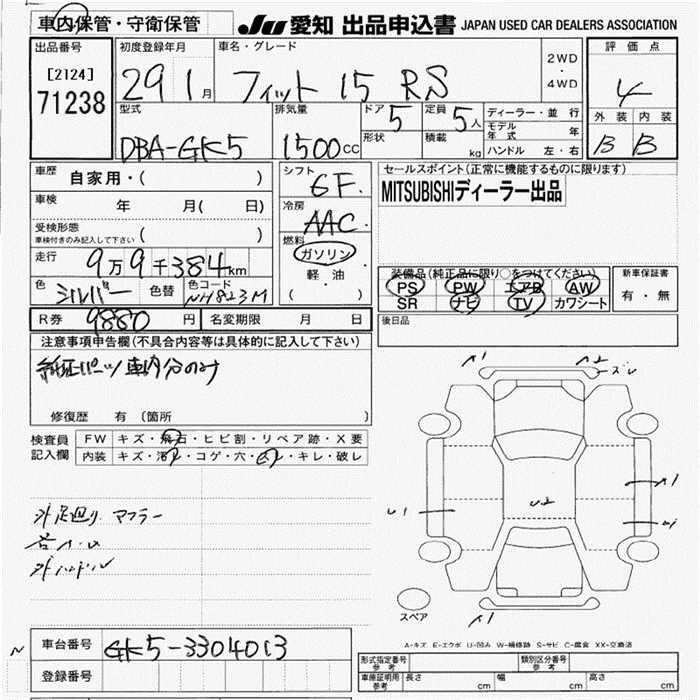 車内保管・守衛保管
JU 愛知 出品申込書 JAPAN USED CAR DEALERS ASSOCIATION
出品番号
[2124]
71238
初度登録年月
29 1月
車名・グレード
フィット 15 RS
2WD
・
4WD
評価点
4
外装 内装
B B
型式
DBA-GK5
排気量
1500cc
ドア 5
形状
定員 5人
積載 kg
ディーラー・並行
モデル年式 年
ハンドル 左・右
車歴 自家用・( )
車検 年 月( 日)
受検形態
車検付きのみ記入して下さい ( )
走行 9万9千384km
色 シルバー 色替
色コード NH823M
シフト
6F
冷房
AAC
燃料
ガソリン
軽・油
( )
セールスポイント(正常に機能するものに限ります)
MITSUBISHIディーラー出品
装備品(純正品に限り○をつけてください)
PS PW エアB AW
SR ナビ TV カワシート
新車保証書
有・無
R券 9880円
名変期限 月 日
後日品
注意事項申告欄(不具合内容等は具体的に記入して下さい)
純正パーツ車内分のみ
修復歴 有 (箇所 )
検査員
記入欄
FW キズ・飛石・ヒビ割・リペア跡・X要
内装 キズ・汚レ・コゲ・穴・スレ・キレ・破レ
外足廻り マフラー
外ハンドル
A1
A2
ズレ
U1
U2
A1
A1
スペア
A-キズ E-エクボ U-凹み W-補修跡 S-サビ C-腐食 XX-交換済
N
車台番号 GK5-3304013
登録番号
形式指定番号
参考
類別区分番号
参考
車庫証明用
参考
長さ cm 幅 cm 高さ cm